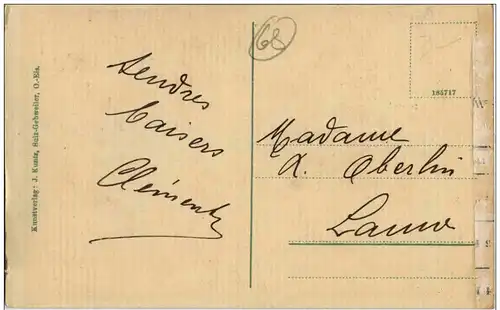 Kunstverlag: J. Kuntz, Sulz-Gebweiler, O.-Els.
68
tendres
baisers
Clémentz
185717
Madame
A. Oberlin
Lauw